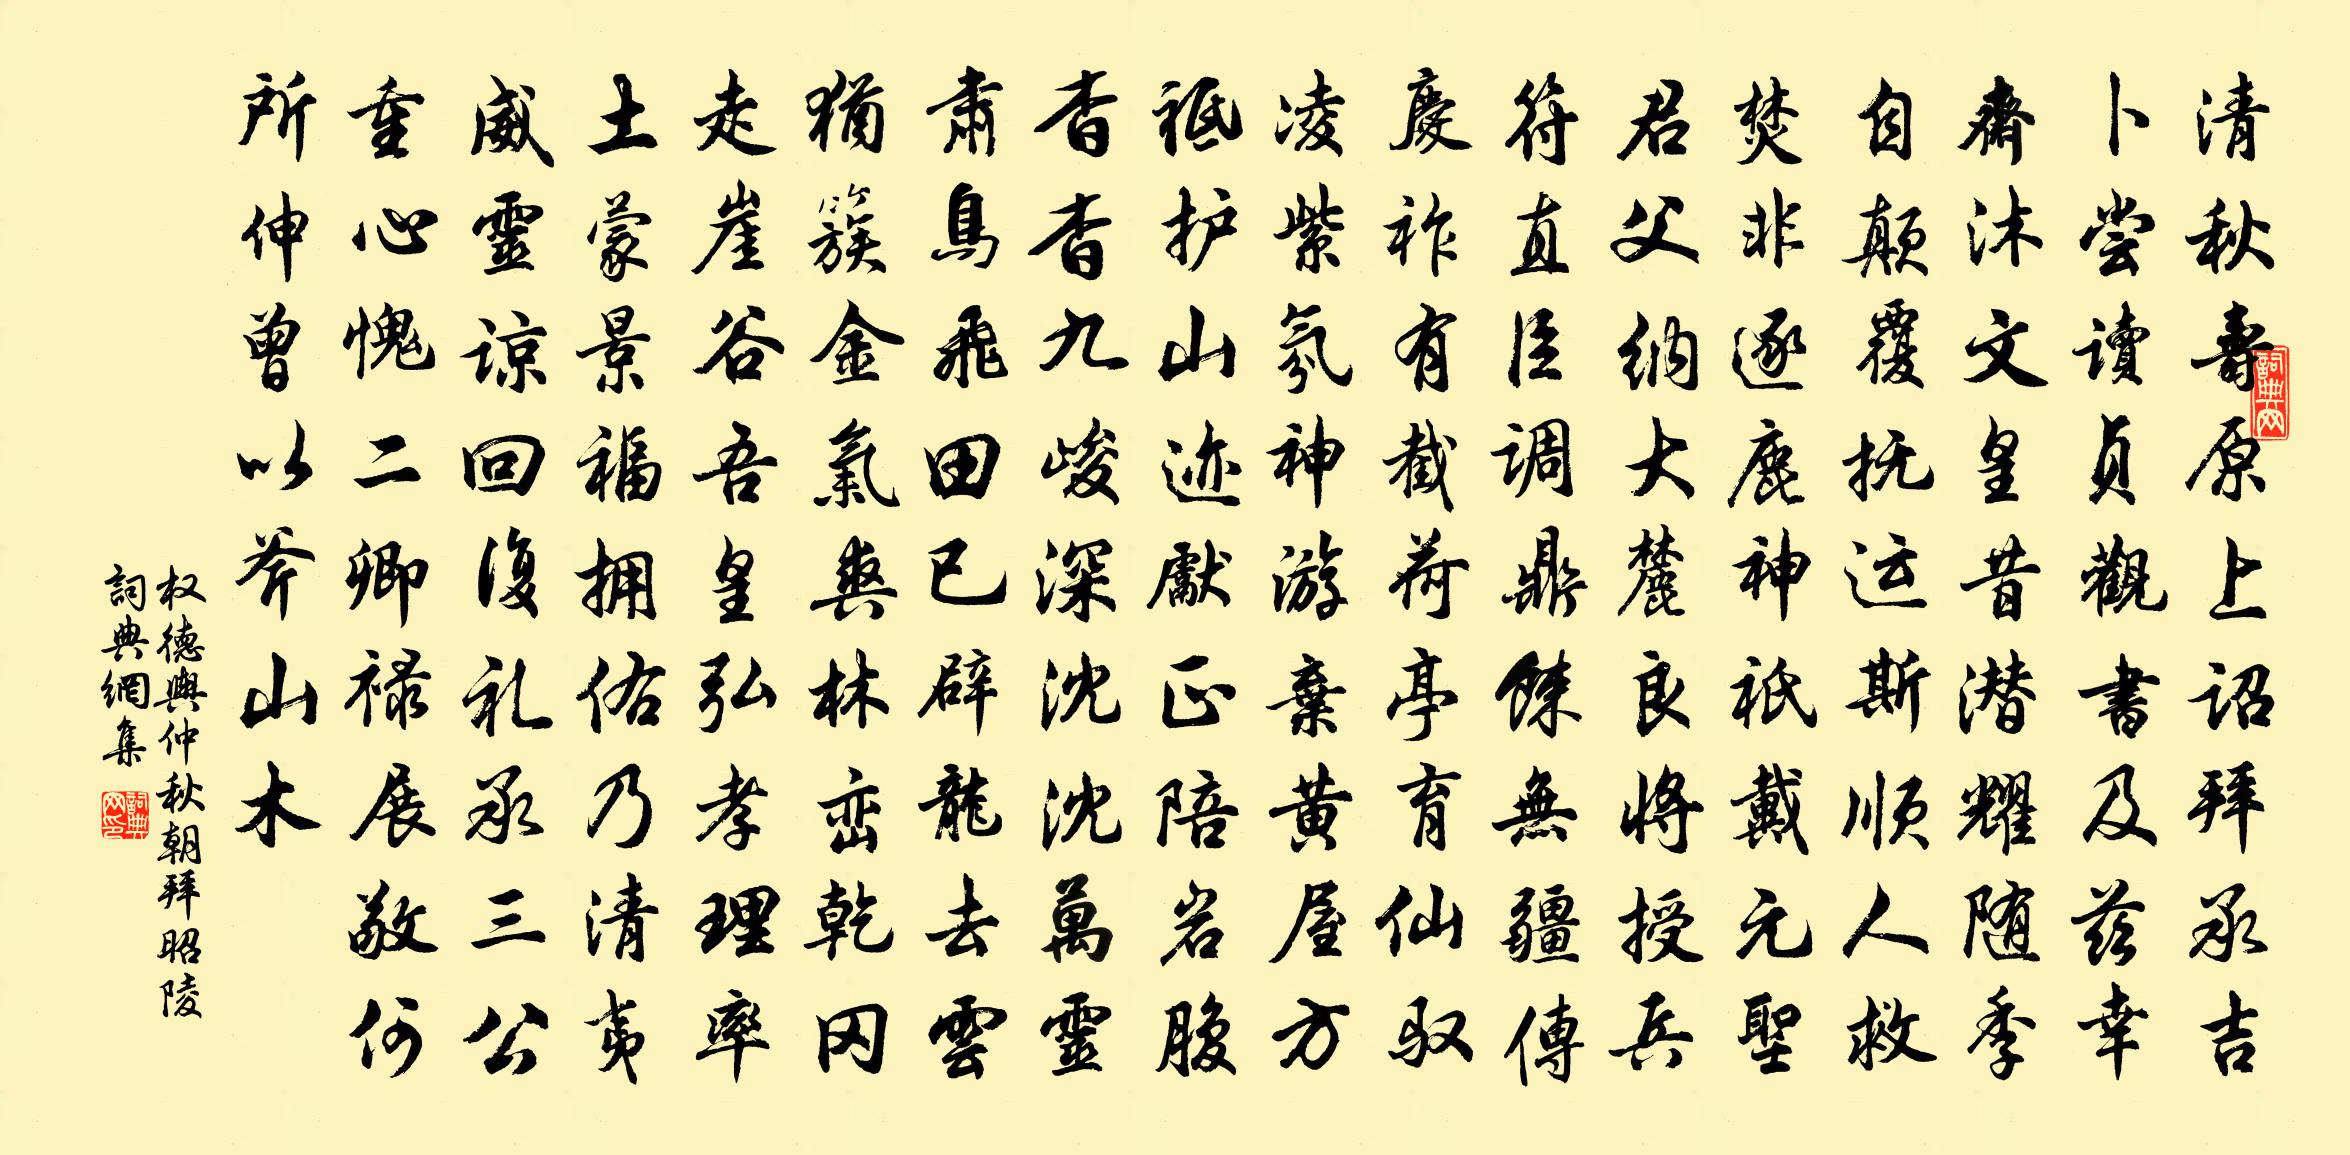 清秋壽原上詔拜承吉
卜尝讀貞觀書及兹幸
齋沐文皇昔潜耀随季
自颠覆抚运斯顺人救
焚非逐鹿神祇戴元聖
君父纳大麓良将授兵
符直臣调鼎餗無疆傳
慶祚有截荷亭育仙驭
凌紫氛神游棄黄屋方
祗护山迹獻正陪岩腹
杳杳九峻深沈沈萬靈
肃鳥飛田已辟龍去雲
猶簇金氣爽林峦乾冈
走崖谷吾皇弘孝理率
土蒙景福拥佑乃清夷
威靈谅回復礼承三公
重心愧二卿禄展敬何
所伸曾以斧山木
权德輿仲秋朝拜昭陵
詞典網集
詞典网
詞典网印